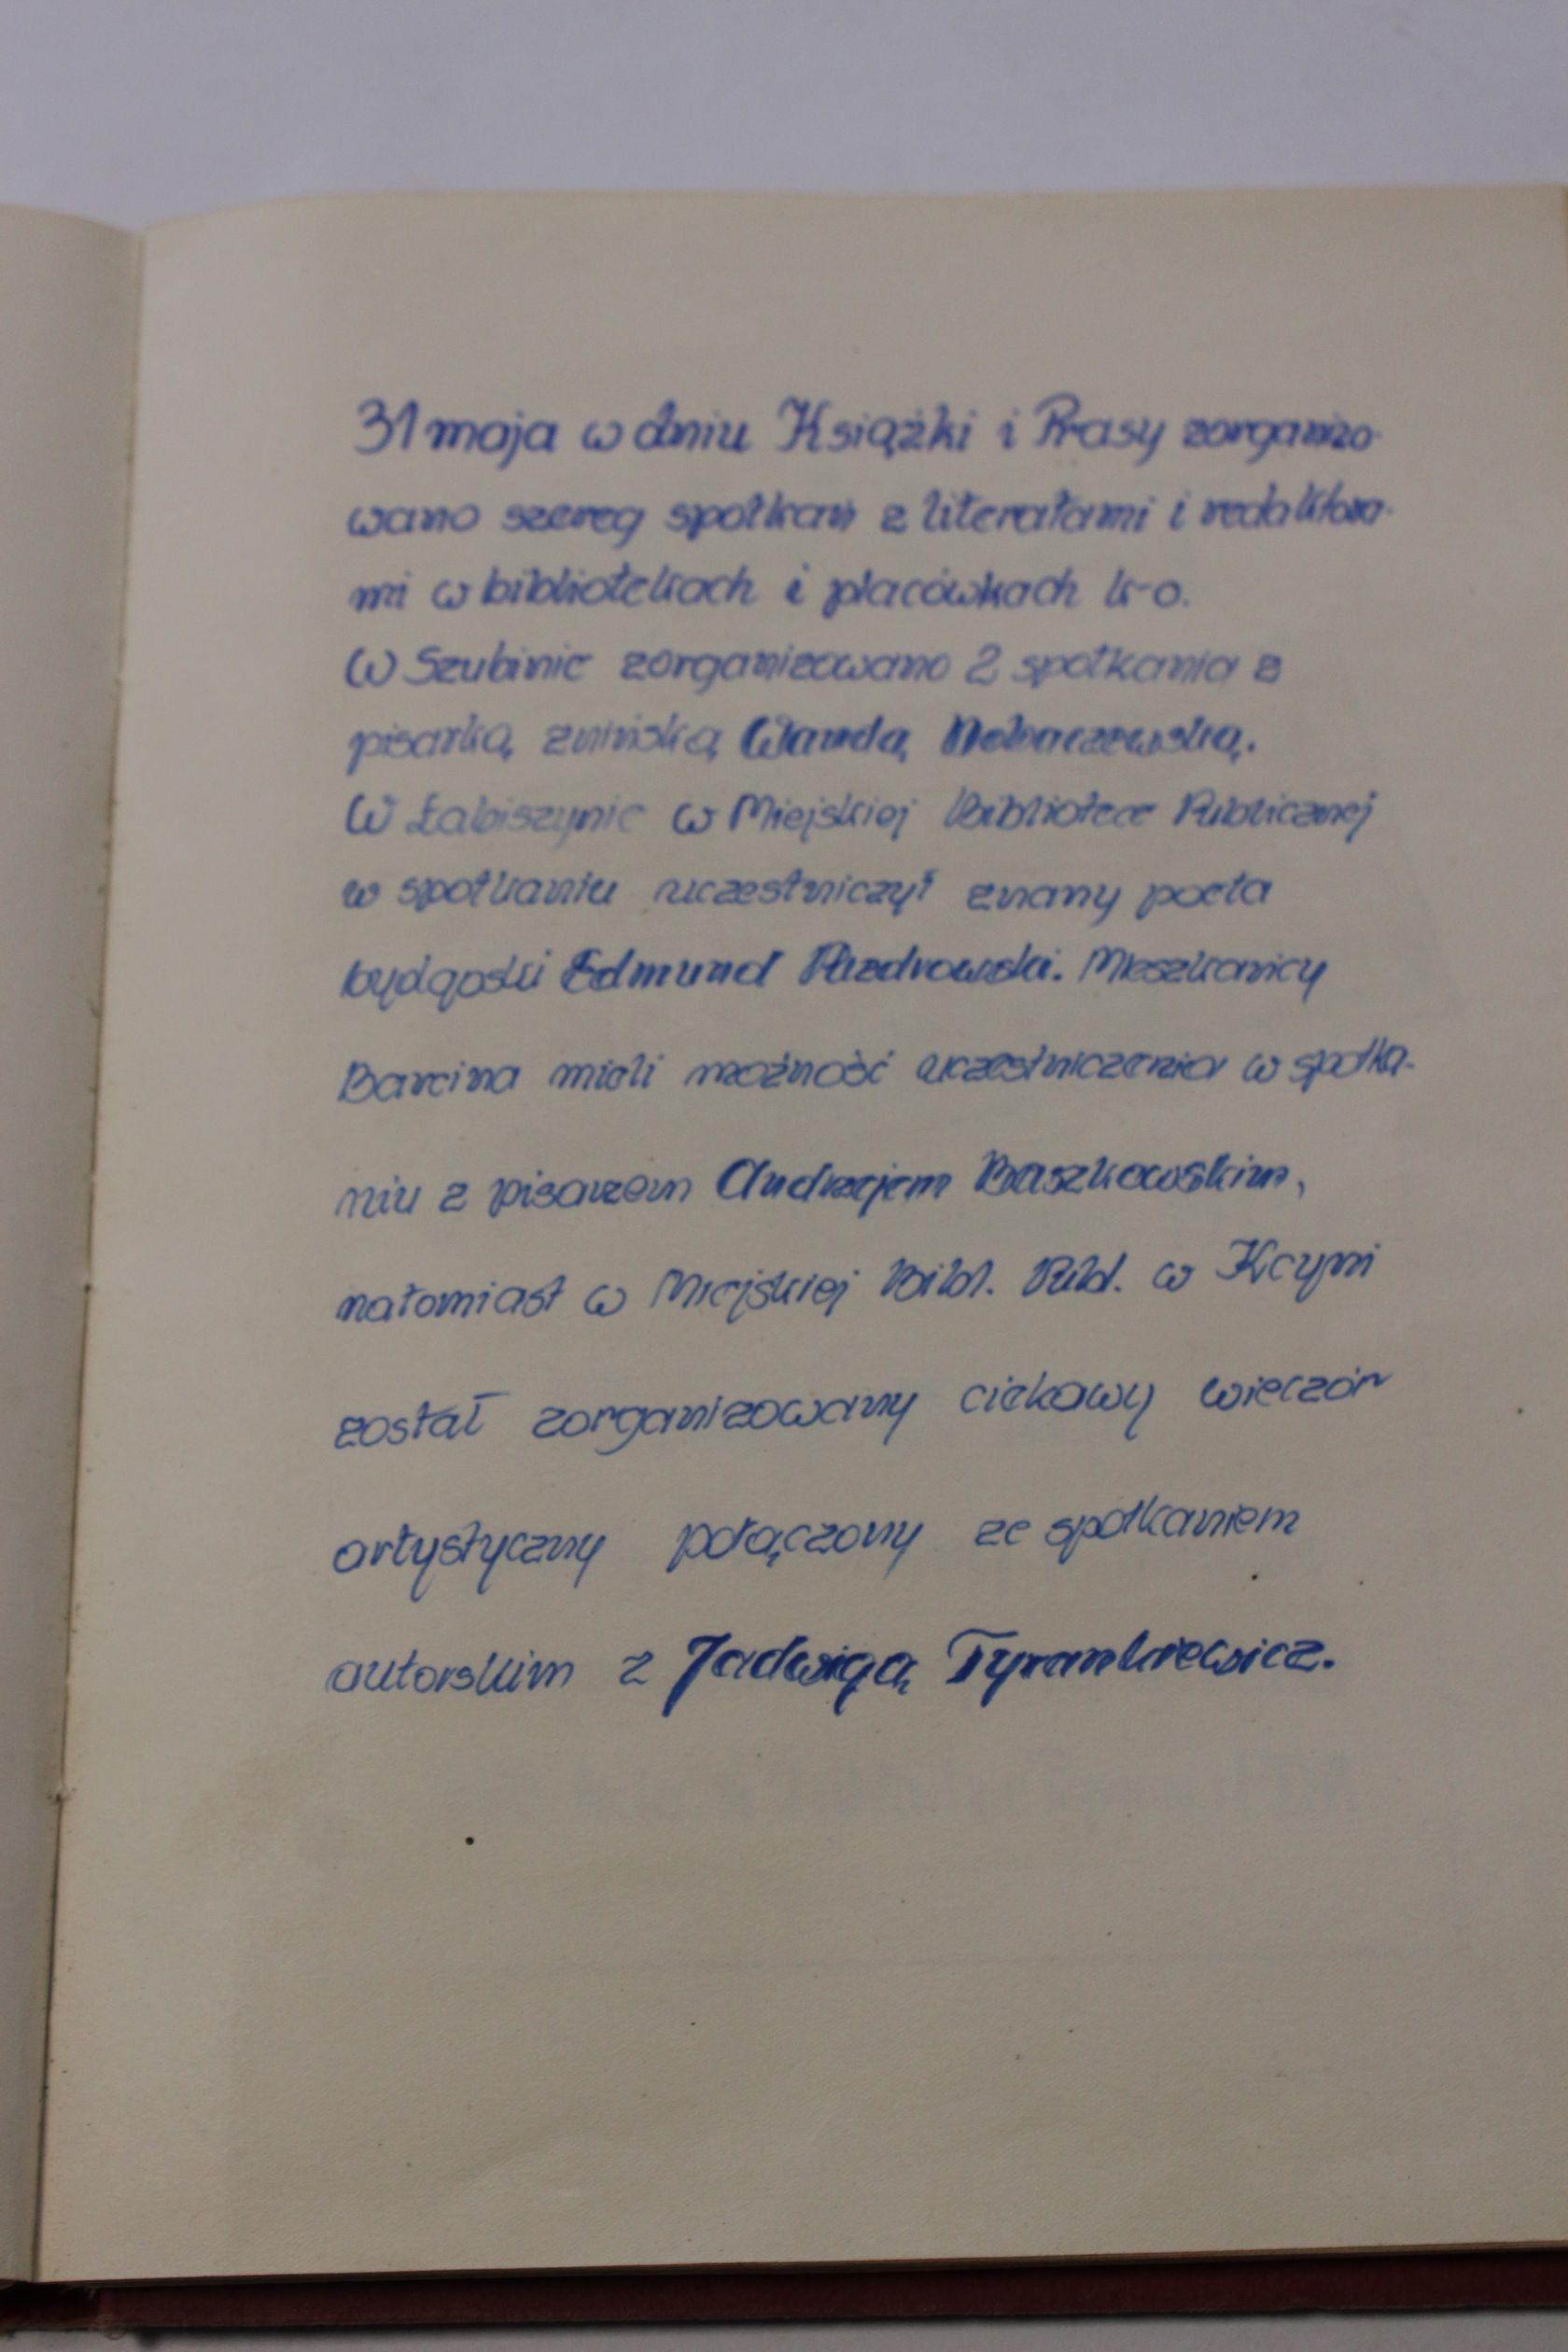 31 maja w dniu Książki i Prasy zorganizo-
wano szereg spotkań z literatami i redaktora-
mi w bibliotekach i placówkach k-o.
W Szubinie zorganizowano 2 spotkania z
pisarką żnińską Wandą Dobaczewską.
W Łabiszynie w Miejskiej Bibliotece Publicznej
w spotkaniu uczestniczył znany poeta
bydgoski Edmund Puzdrowski. Mieszkańcy
Barcina mieli możność uczestniczenia w spotka-
niu z pisarzem Andrzejem Baszkowskim,
natomiast w Miejskiej Bibl. Publ. w Kcyni
został zorganizowany ciekawy wieczór
artystyczny połączony ze spotkaniem
autorskim z Jadwigą Tyrankiewicz.